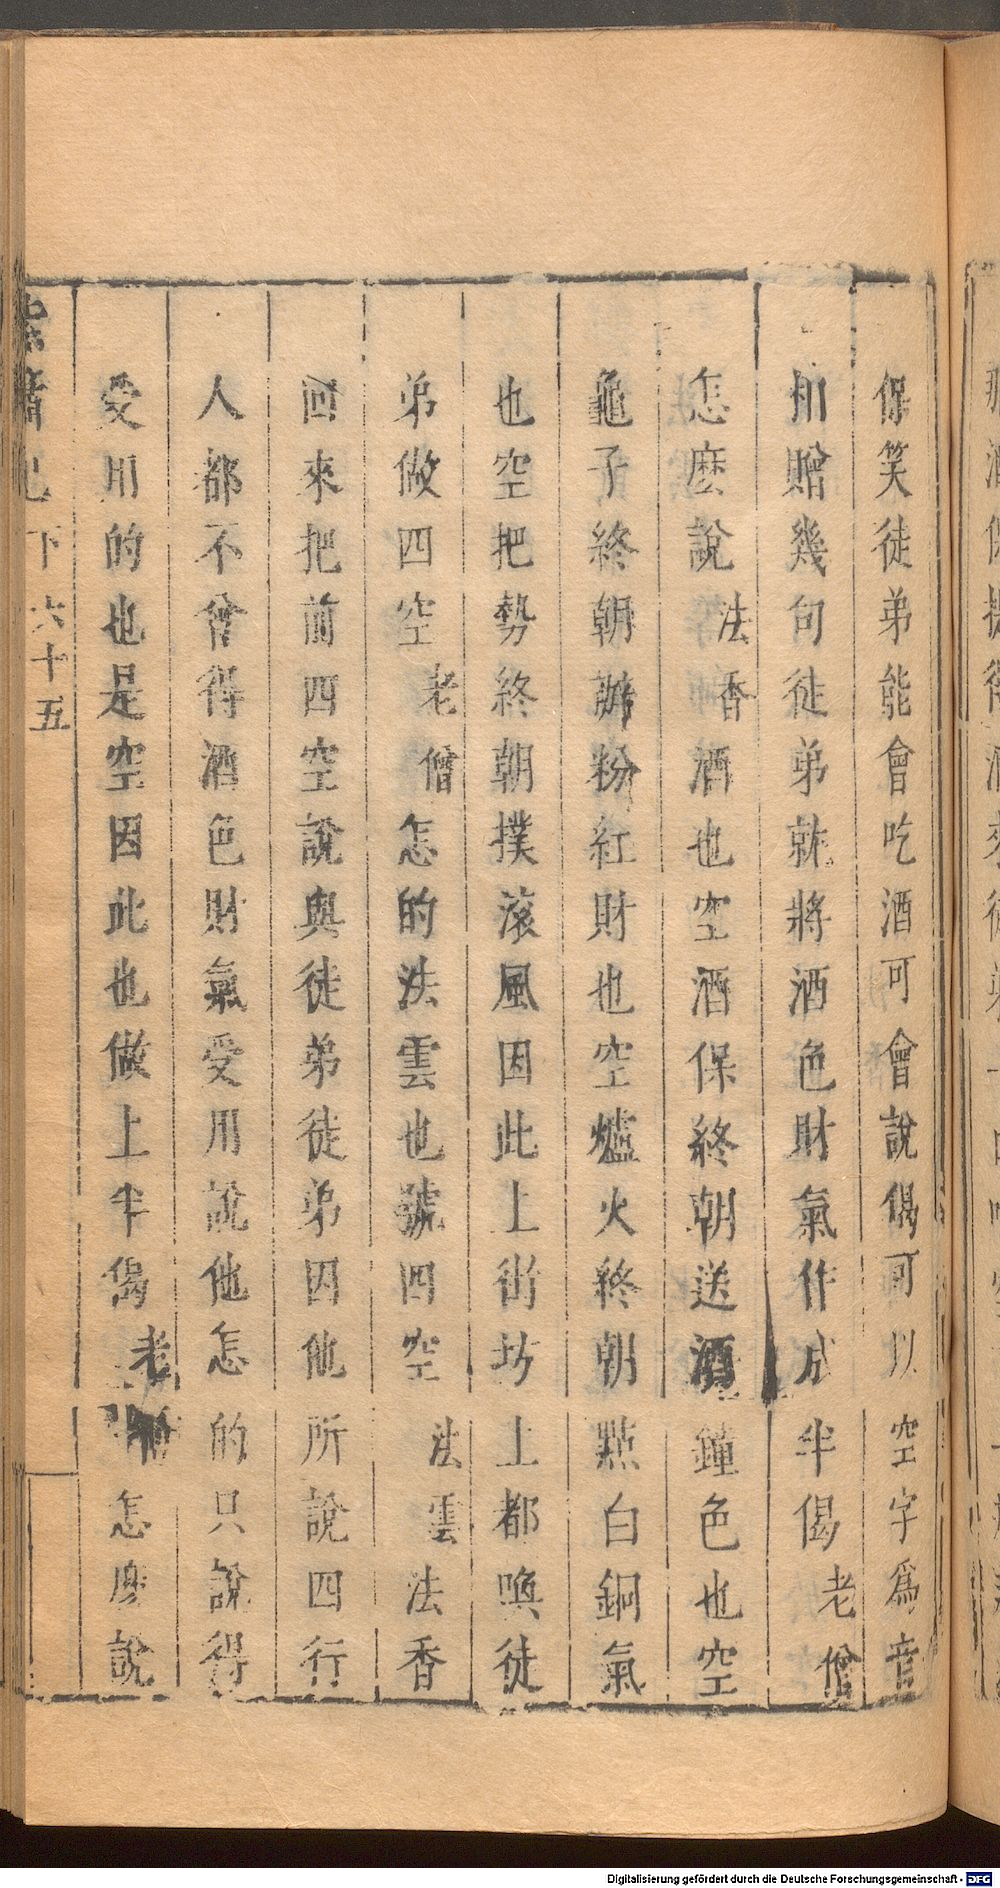 保笑徒弟能會吃酒可會說偈可以空字爲音
相贈幾句徒弟就將酒色財氣作成半偈老僧
怎麼說法香酒也空酒保終朝送酒鐘色也空
龜子終朝辦粉紅財也空爐火終朝點白銅氣
也空把勢終朝撲滚風因此上街坊上都喚徒
弟做四空老僧怎的法雲也號四空法雲法香
回來把前四空說與徒弟徒弟因他所說四行
人都不曾得酒色財氣受用說他怎的只說得
受用的也是空因此也做上半偈老僧怎麽說
下 六十五
Digitalisierung gefördert durch die Deutsche Forschungsgemeinschaft - DFG